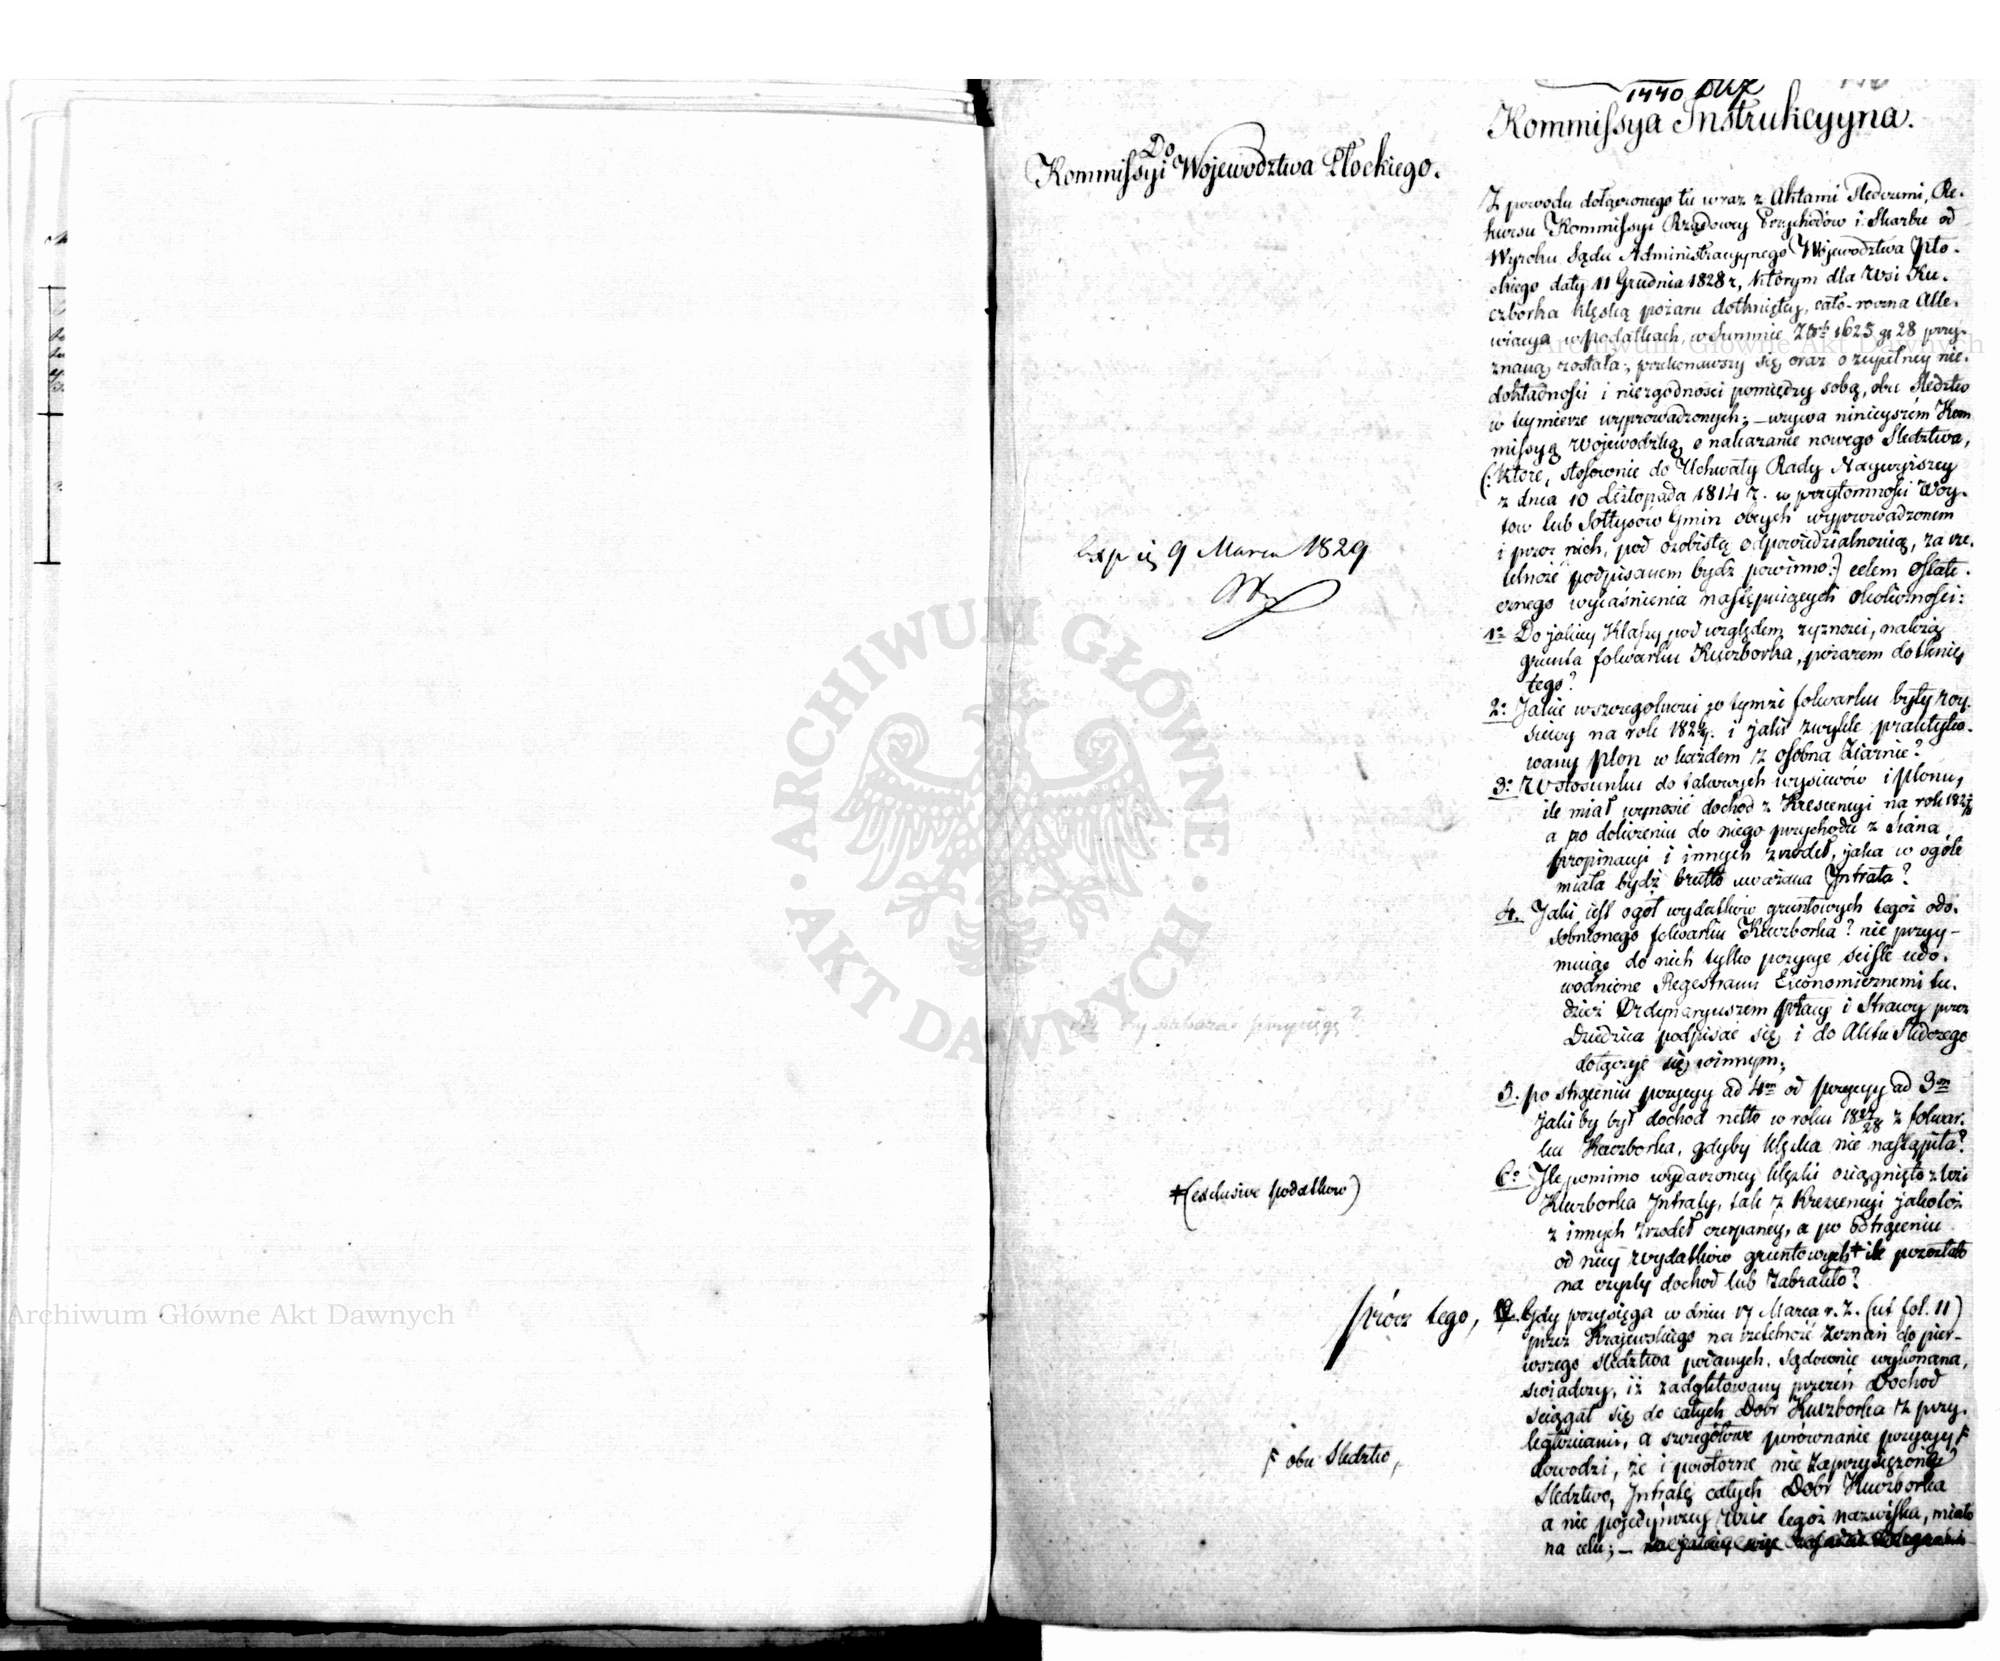 1440
Kommissya Instrukcyyna.
Do
Kommissyi Województwa Płockiego.
Z powodu dołączonego tu wraz z Aktami Sledczemi, Re-
kursu Kommissyi Rządowey Przychodów i Skarbu od
Wyroku Sądu Administracyynego Województwa Pło-
ckiego daty 11 Grudnia 1828 r, którym dla Wsi Ku-
czborka klęską pożaru dotkniętey, cało-roczna Alle-
wiacya w podatkach, w Summie Złpk 1625 gr 28 przy-
znaną została; przekonawszy się oraz o zupełney nie-
dokładności i niezgodności pomiędzy sobą, obu Sledztw
w teymierze wyprowadzonych; – wzywa ninieyszém Kom
missyą Wojewodzką o nakazanie nowego Sledztwa,
(:które, stosownie do Uchwały Rady Naywyższey
z dnia 10 Listopada 1814 r. w przytomności Woy-
tow lub Sołtysów Gmin obcych wyprowadzonem
i przez nich, pod osobistą odpowiedzialnością, za rze-
telność podpisanem bydź powinno:) celem ostate-
cznego wyiaśnienia następuiących okoliczności:
1o Do jakiey Klassy pod względem żyzności, należą
grunta folwarku Kuczborka, pożarem dotknię
tego?
2o Jakie w szczegolności po tymże folwarku były wy-
siewy na rok 182 i jaki zwykle praktyko-
wany plon w każdem z osobna Ziarnie?
3o W stosunku do takowych wysiewow i plonu,
ile miał wynosić dochod z Krescencyi na rok 182
a po doliczeniu do niego przychodu z Siana,
propinacyi i innych zrodeł, jaka w ogóle
miała bydź brutto uważana Intrata?
4. Jaki jest ogoł wydatkow gruntowych tegoż odo-
sobnionego folwarku Kuczborka? nie przyy-
muiąc do nich tylko pozycye ściśle udo-
wodnione Regestrami Ekonomicznemi tu-
dzież Ordynaryuszem płacy i Strawy przez
Dziedzica podpisać się i do Aktu Sledczego
dołączyć się winnym;
5. po strąceniu pozycyy ad 4m od pozycyy ad 3m
jaki by był dochod netto w roku 1827/28 z folwar-
ku Kuczborka, gdyby klęska nie nastąpiła?
6o Ile pomimo wydarzoney klęski osiągnięto z Wsi
Kuczborka Intraty, tak z Krescencyi jakoteż
z innych zrodeł czerpaney, a po odtrąceniu
od niey wydatków gruntowych + ile pozostało
na czysty dochod lub zabrakło?
Gdy przysięga w dniu 17 Marca r. z. (ut fol. 11)
przez Krajewskiego na rzetelność zeznań do pier-
wszego sledztwa podanych, sądownie wykonana,
swiadczy, iż zadyktowany przezeń Dochod
sciągał się do całych Dobr Kuczborka z przy-
ległościami, a szczegółowe porównanie pozycyy F
dowodzi, że i powtorne nie zaprzysiężone
Sledztwo, Intratę całych Dobr Kuczborka
a nie pojedyńczey Wsi tegoż nazwiska, miało
na celu; –
Exp ię 9 Marca 1829
przysięgę?
+ (exclusive podatkow)
prócz tego,
F obu Sledztw,
ARCHIWUM GŁÓWNE · AKT DAWNYCH ·
Archiwum Główne Akt Dawnych
Archiwum Główne Akt Dawnych